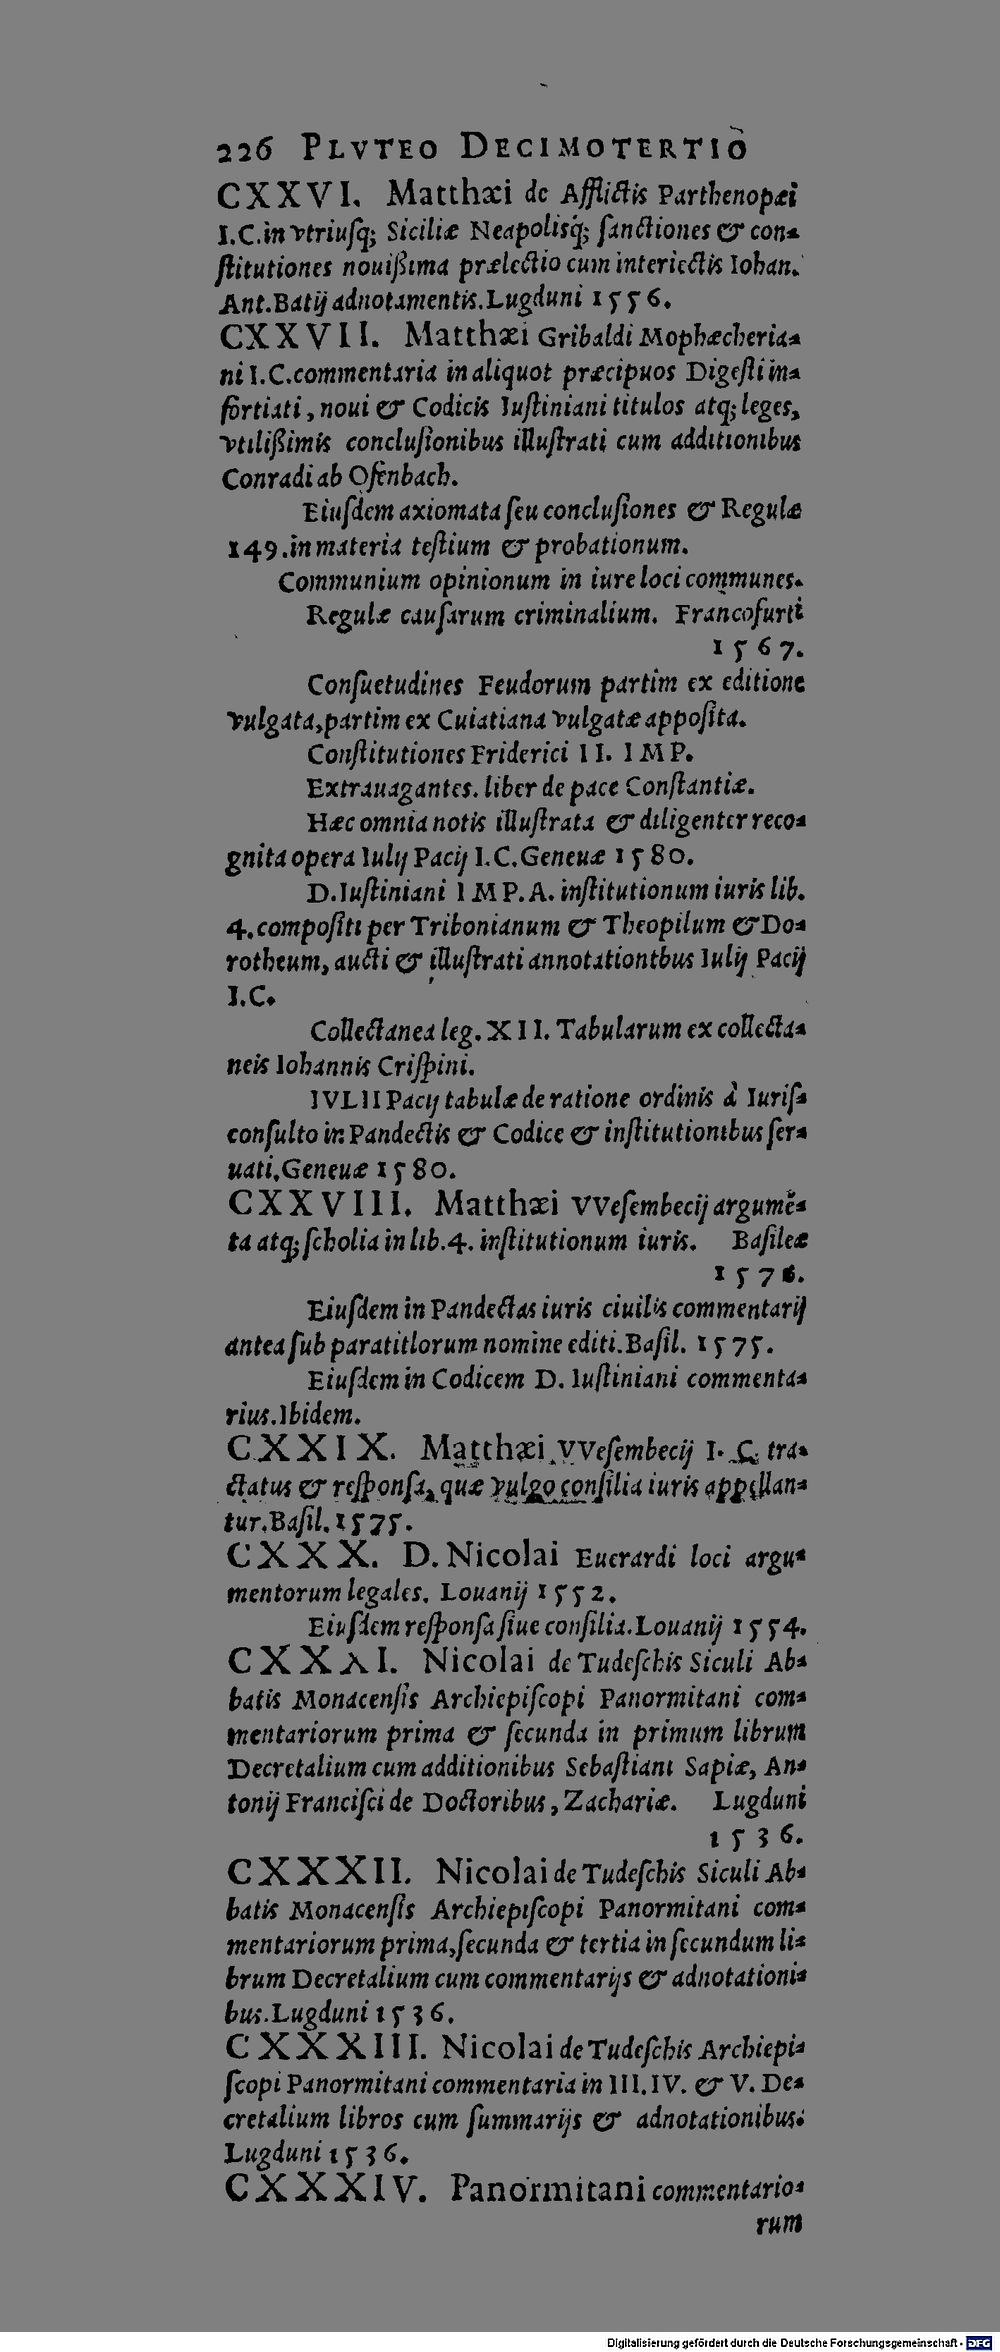 226 PLVTEO DECIMOTERTIO
CXXVI. Matthæi de Afflictis Parthenopæi
I.C. in vtriuſq; Siciliæ Neapolisq́; ſanctiones & con-
ſtitutiones nouißima prælectio cum interiectis Iohan.
Ant. Batij adnotamentis. Lugduni 1556.
CXXVII. Matthæi Gribaldi Mophæcheria-
ni I.C. commentaria in aliquot præcipuos Digeſti in-
fortiati, noui & Codicis Iuſtiniani titulos atq; leges,
vtilißimis concluſionibus illuſtrati cum additionibus
Conradi ab Ofenbach.
Eiuſdem axiomata ſeu concluſiones & Regulæ
149. in materia teſtium & probationum.
Communium opinionum in iure loci communes.
Regulæ cauſarum criminalium. Francofurti
1567.
Conſuetudines Feudorum partim ex editione
vulgata, partim ex Cuiatiana vulgatæ appoſita.
Conſtitutiones Friderici II. IMP.
Extrauagantes. liber de pace Conſtantiæ.
Hæc omnia notis illuſtrata & diligenter reco-
gnita opera Iulij Pacij I.C. Geneuæ 1580.
D. Iuſtiniani IMP. A. inſtitutionum iuris lib.
4. compoſiti per Tribonianum & Theopilum & Do-
rotheum, aucti & illuſtrati annotationtbus Iulij Pacij
I.C.
Collectanea leg. XII. Tabularum ex collecta-
neis Iohannis Criſpini.
IVLII Pacij tabulæ de ratione ordinis à Iuriſ-
conſulto in Pandectis & Codice & inſtitutionibus ſer-
uati, Geneuæ 1580.
CXXVIII. Matthæi VVeſembecij argumẽ-
ta atq; ſcholia in lib. 4. inſtitutionum iuris. Baſileæ
1576.
Eiuſdem in Pandectas iuris ciuilis commentarij
antea ſub paratitlorum nomine editi. Baſil. 1575.
Eiuſdem in Codicem D. Iuſtiniani commenta-
rius. Ibidem.
CXXIX. Matthæi VVeſembecij I. C. tra-
ctatus & reſponſa, quæ vulgo conſilia iuris appellan-
tur. Baſil. 1575.
CXXX. D. Nicolai Euerardi loci argu-
mentorum legales. Louanij 1552.
Eiuſdem reſponſa ſiue conſilia. Louanij 1554.
CXXXI. Nicolai de Tudeſchis Siculi Ab-
batis Monacenſis Archiepiſcopi Panormitani com-
mentariorum prima & ſecunda in primum librum
Decretalium cum additionibus Sebaſtiani Sapiæ, An-
tonij Franciſci de Doctoribus, Zachariæ. Lugduni
1536.
CXXXII. Nicolai de Tudeſchis Siculi Ab-
batis Monacenſis Archiepiſcopi Panormitani com-
mentariorum prima, ſecunda & tertia in ſecundum li-
brum Decretalium cum commentarijs & adnotationi-
bus. Lugduni 1536.
CXXXIII. Nicolai de Tudeſchis Archiepi-
ſcopi Panormitani commentaria in III. IV. & V. De-
cretalium libros cum ſummarijs & adnotationibus.
Lugduni 1536.
CXXXIV. Panormitani commentario-
rum
Digitalisierung gefördert durch die Deutsche Forschungsgemeinschaft - DFG